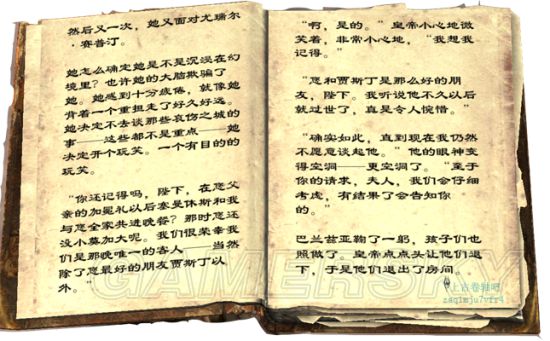 然后又一次，她又面对尤瑞尔
·赛普汀。
她怎么确定她是不是沉浸在幻
境里？也许她的大脑欺骗了
她。她感到十分疲倦，就像她
背着一个重担走了好久好远。
她决定不去谈那些哀伤之城的
事——这些都不是重点——她
决定开个玩笑。一个有目的的
玩笑。
“你还记得吗，陛下，在您父
亲的加冕礼以后塞曼休斯和我
与您全家共进晚餐？那时您还
没小莫加大呢。我们很荣幸我
们是那晚唯一的客人——当然
除了您最好的朋友贾斯丁以
外。”
“啊，是的。”皇帝小心地微
笑着，非常小心地，“我想我
记得。”
“您和贾斯丁是那么好的朋
友，陛下。我听说他不久以后
就过世了，真是令人惋惜。”
“确实如此，直到现在我仍然
不愿意谈起他。”他的眼神变
得空洞——更空洞了。“至于
你的请求，夫人，我们会仔细
考虑，有结果了会告知你
的。”
巴兰兹亚鞠了一躬，孩子们也
照做了。皇帝点点头让他们退
下，于是他们退出了房间。
上古卷轴吧
zaqimju7vfr4
GAMERSKY